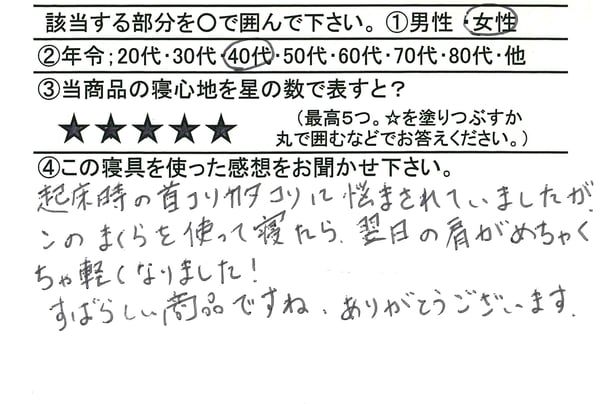 該当する部分を〇で囲んで下さい。①男性・女性
②年令；20代・30代・40代・50代・60代・70代・80代・他
③当商品の寝心地を星の数で表すと？
★★★★★
（最高５つ。☆を塗りつぶすか
丸で囲むなどでお答えください。）
④この寝具を使った感想をお聞かせ下さい。
起床時の首コリカタコリに悩まされていましたが、
このまくらを使って寝たら、翌日の肩がめちゃく
ちゃ軽くなりました！
すばらしい商品ですね、ありがとうございます。